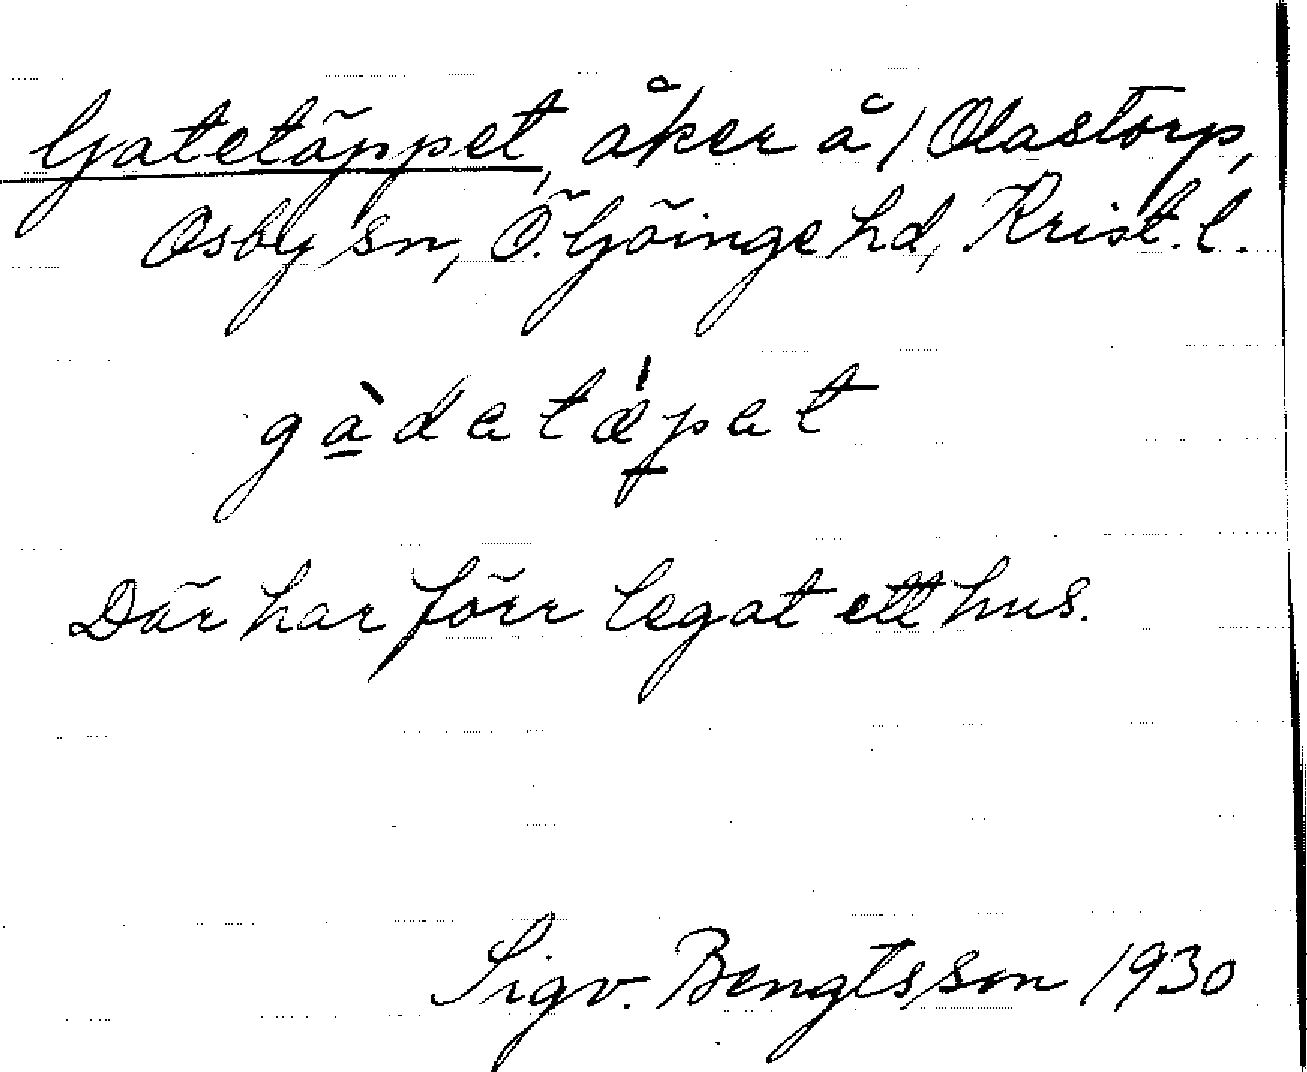 Gatetäppet, åker å / Olastorp,
Osby sn, Ö. Göinge hd, Krist. l.
gàdatǽpat
Där har förr legat ett hus.
Sigv. Bengtsson 1930